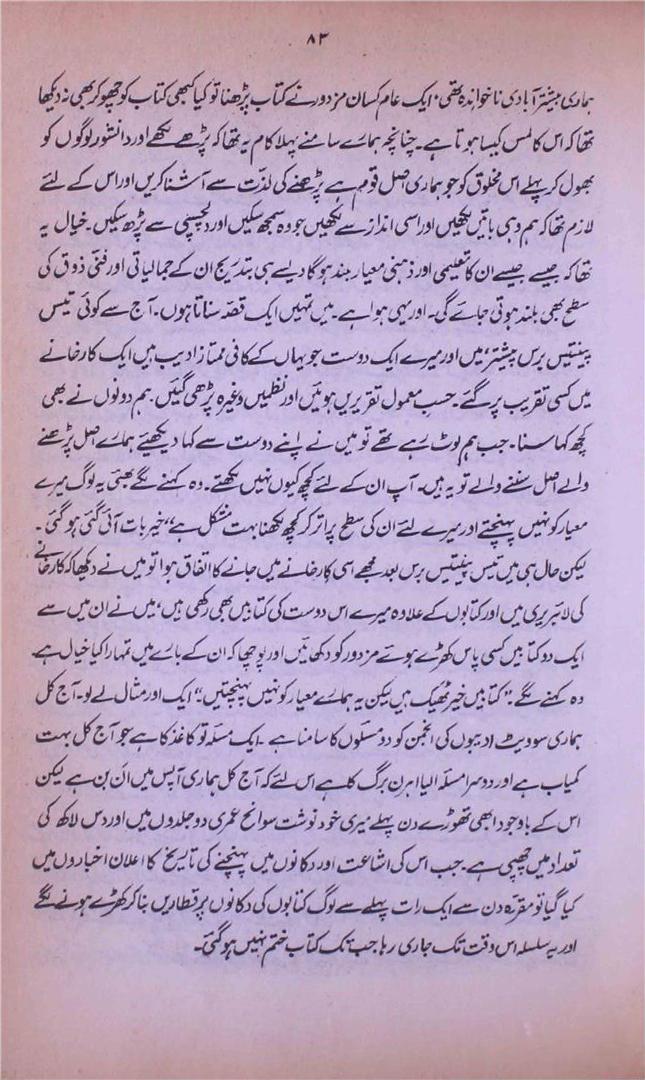 ۸۳
ہماری بیشتر آبادی ناخواندہ تھی۔ ایک عام کسان مزدور نے کتاب پڑھنا تو کیا کبھی کتاب کو چھو کر بھی نہ دیکھا
تھا کہ اس کا لمس کیسا ہوتا ہے۔ چنانچہ ہمارے سامنے پہلا کام یہ تھا کہ پڑھے لکھے اور دانشور لوگوں کو
بھول کر پہلے اس مخلوق کو جو ہماری اصل قوم ہے پڑھنے کی لذّت سے آشنا کریں اور اس کے لئے
لازم تھا کہ ہم وہی باتیں لکھیں اور اسی انداز سے لکھیں جو وہ سمجھ سکیں اور دلچسپی سے پڑھ سکیں۔ خیال یہ
تھا کہ جیسے جیسے ان کا تعلیمی اور ذہنی معیار بلند ہوگا ویسے ہی بتدریج ان کے جمالیاتی اور فنّی ذوق کی
سطح بھی بلند ہوتی جائے گی۔ اور یہی ہوا ہے۔ میں تمہیں ایک قصّہ سناتا ہوں۔ آج سے کوئی تیس
پینتیس برس پیشتر، میں اور میرے ایک دوست جو یہاں کے کافی ممتاز ادیب ہیں ایک کارخانے
میں کسی تقریب پر گئے۔ حسبِ معمول تقریریں ہوئیں اور نظمیں وغیرہ پڑھی گئیں۔ ہم دونوں نے بھی
کچھ کہا سنا۔ جب ہم لوٹ رہے تھے تو میں نے اپنے دوست سے کہا دیکھئیے ہمارے اصل پڑھنے
والے اصل سننے والے تو یہ ہیں۔ آپ ان کے لئے کچھ کیوں نہیں لکھتے۔ وہ کہنے لگے بھئی یہ لوگ میرے
معیار کو نہیں پہنچتے اور میرے لئے ان کی سطح پر اتر کر کچھ لکھنا بہت مشکل ہے" خیر بات آئی گئی ہو گئی۔
لیکن حال ہی میں تیس پینتیس برس بعد مجھے اسی کارخانے میں جانے کا اتفاق ہوا تو میں نے دیکھا کہ کارخانے
کی لائبریری میں اور کتابوں کے علاوہ میرے اس دوست کی کتابیں بھی رکھی ہیں، میں نے ان میں سے
ایک دو کتابیں کسی پاس کھڑے ہوئے مزدور کو دکھائیں اور پوچھا کہ ان کے بارے میں تمہارا کیا خیال ہے
وہ کہنے لگے۔ "کتابیں خیر ٹھیک ہیں لیکن یہ ہمارے معیار کو نہیں پہنچتیں۔" ایک اور مثال لے لو۔ آج کل
ہماری سوویٹ ادیبوں کی انجمن کو دو مسئلوں کا سامنا ہے۔ ایک مسئلہ تو کاغذ کا ہے جو آج کل بہت
کمیاب ہے اور دوسرا مسئلہ الیا اہرن برگ کا ہے اس لئے کہ آج کل ہماری آپس میں اَن بن ہے لیکن
اس کے باوجود ابھی تھوڑے دن پہلے میری خود نوشت سوانح عمری دو جلدوں میں اور دس لاکھ کی
تعداد میں چھپی ہے۔ جب اس کی اشاعت اور دکانوں میں پہنچنے کی تاریخ کا اعلان اخباروں میں
کیا گیا تو مقررہ دن سے ایک رات پہلے سے لوگ کتابوں کی دکانوں پر قطاریں بنا کر کھڑے ہونے لگے
اور یہ سلسلہ اس وقت تک جاری رہا جب تک کتاب ختم نہیں ہو گئی۔